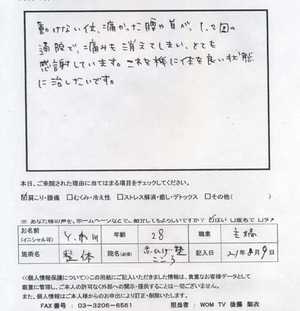 動けない位、痛かった腰や首が、1、2回の
通院で、痛みも消えてしまい、とても
感謝しています。これを機に体を良い状態
に治したいです。
本日、ご来院された理由に当てはまる項目をチェックしてください。
☑肩こり・腰痛 □むくみ・冷え性 □ストレス解消・癒し・デトックス □その他( )
お名前
(イニシャル可) Y.W 年齢 28 職業 主婦
施術名 整体 院名(必須) 記入日 21年8月9日
<個人情報保護について>この用紙にご記入いただきました情報は、貴重なお客様データとして
厳重に管理し、ご本人の許可のなき外部への開示・提供することは一切ございません。
また、個人情報はご本人様からのお申出により訂正・削除いたします。
FAX番号 : 03-3206-6561 担当者 : WOM TV 後藤